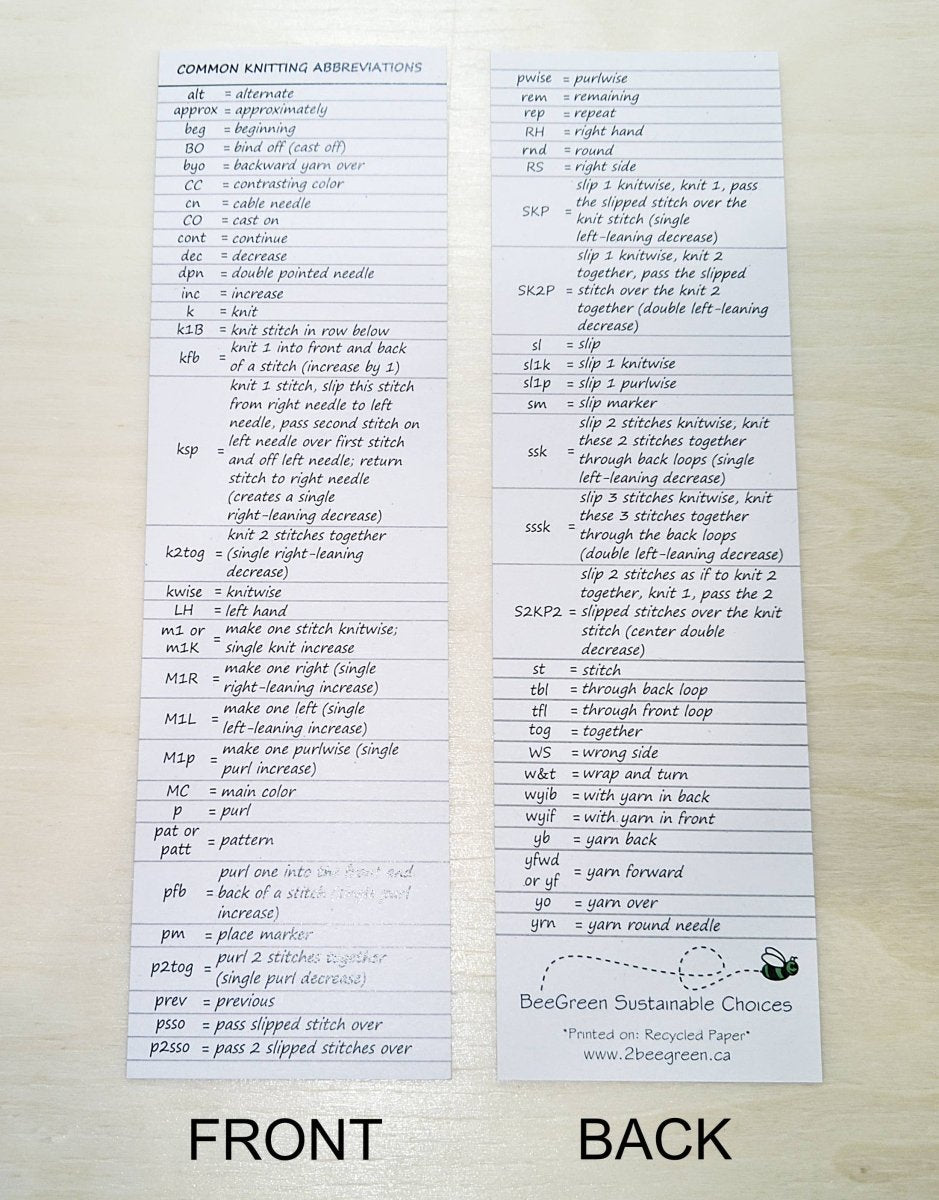 COMMON KNITTING ABBREVIATIONS
alt = alternate
approx = approximately
beg = beginning
BO = bind off (cast off)
byo = backward yarn over
CC = contrasting color
cn = cable needle
CO = cast on
cont = continue
dec = decrease
dpn = double pointed needle
inc = increase
k = knit
k1B = knit stitch in row below
kfb = knit 1 into front and back
of a stitch (increase by 1)
knit 1 stitch, slip this stitch
from right needle to left
needle, pass second stitch on
ksp = left needle over first stitch
and off left needle; return
stitch to right needle
(creates a single
right-leaning decrease)
knit 2 stitches together
k2tog = (single right-leaning
decrease)
kwise = knitwise
LH = left hand
m1 or = make one stitch knitwise;
m1K single knit increase
M1R = make one right (single
right-leaning increase)
M1L = make one left (single
left-leaning increase)
M1p = make one purlwise (single
purl increase)
MC = main color
p = purl
pat or
patt = pattern
purl one into the front and
pfb = back of a stitch (single purl
increase)
pm = place marker
p2tog = purl 2 stitches together
(single purl decrease)
prev = previous
psso = pass slipped stitch over
p2sso = pass 2 slipped stitches over
FRONT
pwise = purlwise
rem = remaining
rep = repeat
RH = right hand
rnd = round
RS = right side
slip 1 knitwise, knit 1, pass
the slipped stitch over the
SKP = knit stitch (single
left-leaning decrease)
slip 1 knitwise, knit 2
together, pass the slipped
SK2P = stitch over the knit 2
together (double left-leaning
decrease)
sl = slip
sl1k = slip 1 knitwise
sl1p = slip 1 purlwise
sm = slip marker
slip 2 stitches knitwise, knit
these 2 stitches together
ssk = through back loops (single
left-leaning decrease)
slip 3 stitches knitwise, knit
these 3 stitches together
sssk = through the back loops
(double left-leaning decrease)
slip 2 stitches as if to knit 2
together, knit 1, pass the 2
S2KP2 = slipped stitches over the knit
stitch (center double
decrease)
st = stitch
tbl = through back loop
tfl = through front loop
tog = together
WS = wrong side
w&t = wrap and turn
wyib = with yarn in back
wyif = with yarn in front
yb = yarn back
yfwd
or yf = yarn forward
yo = yarn over
yrn = yarn round needle
BeeGreen Sustainable Choices
*Printed on: Recycled Paper*
www.2beegreen.ca
BACK